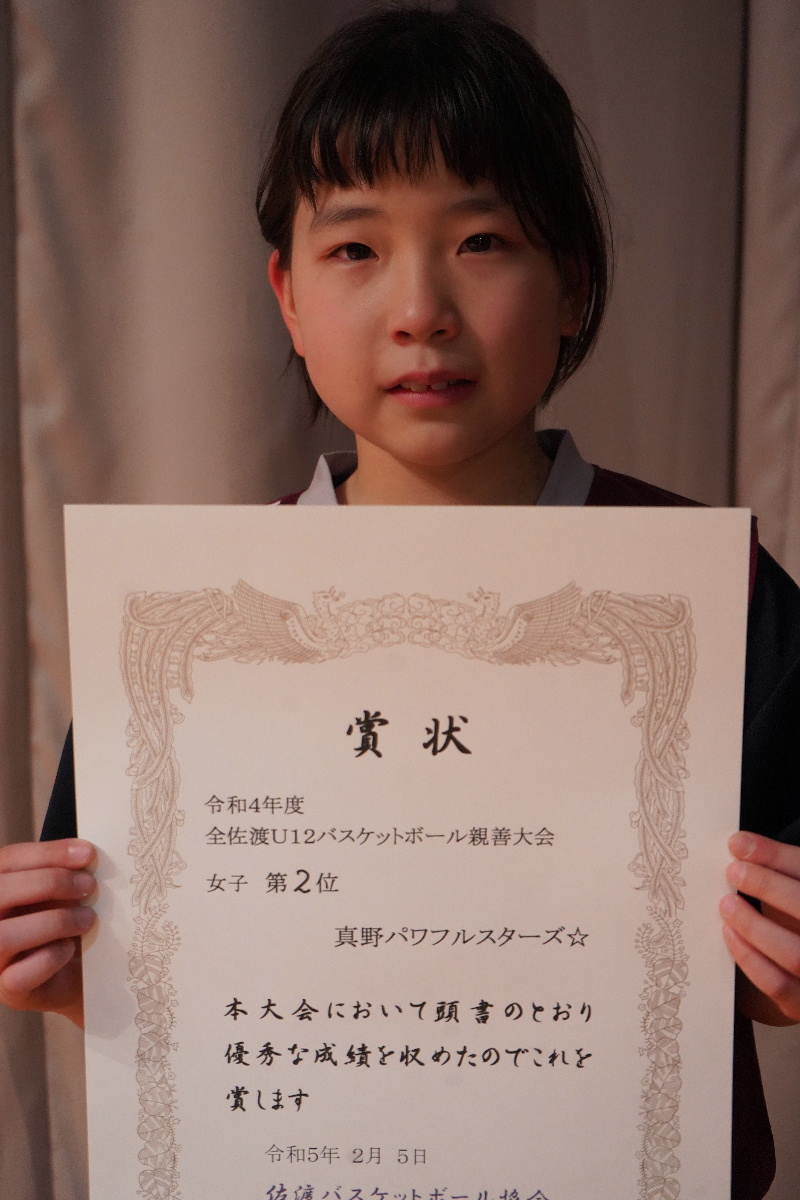 賞状
令和4年度
全佐渡U12バスケットボール親善大会
女子 第2位
真野パワフルスターズ☆
本大会において頭書のとおり
優秀な成績を収めたのでこれを
賞します
令和5年 2月 5日
佐渡バスケットボール協会